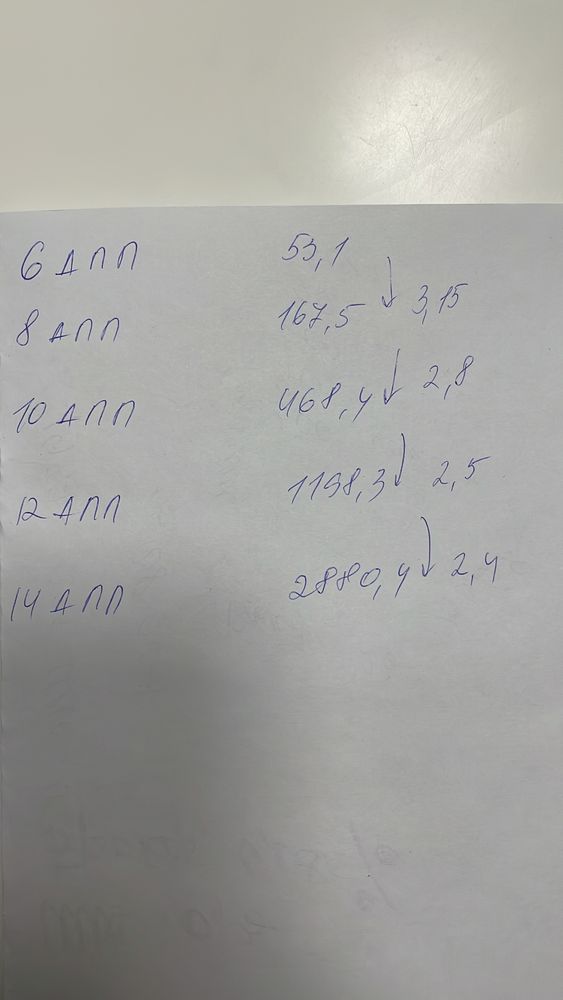 6 ДПП 53,1
8 ДПП 167,5 ↓ 3,15
10 ДПП 468,4 ↓ 2,8
12 ДПП 1198,3 ↓ 2,5
14 ДПП 2880,4 ↓ 2,4